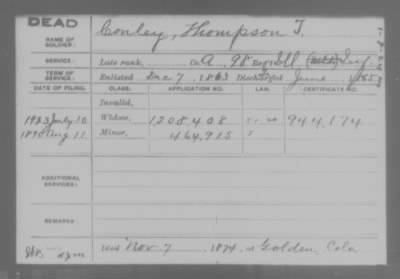 DEAD
NAME OF SOLDIER: Conley, Thompson T.
SERVICE: Late rank, Co. A, 98 Reg't Ill. Inf.
TERM OF SERVICE: Enlisted Dec 7, 1863 Discharged June, 1865
DATE OF FILING. CLASS. APPLICATION NO. LAW. CERTIFICATE NO.
Invalid,
1923 July 10 Widow, 1208.408 944,174
1890 Aug 11 Minor, 464,915
ADDITIONAL SERVICES:
REMARKS:
Died Nov. 7 1874, at Golden, Colo.